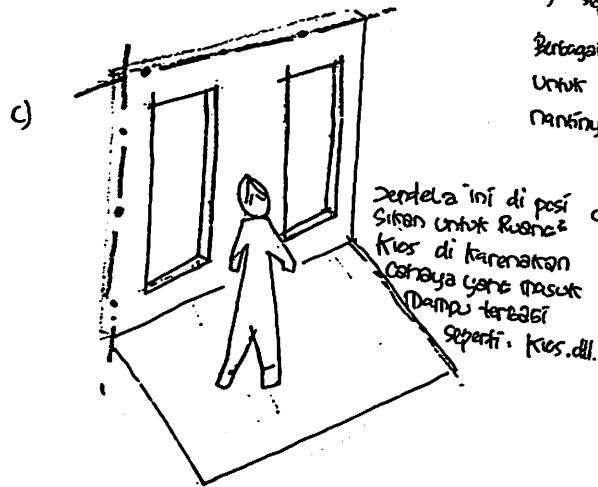 c)
Berbagai
untuk
nantiny
Jendela ini di posi
sikan untuk Ruang²
Kios di karenakan
Cahaya yang masuk
Mampu terbagi
seperti. Kios.dll.